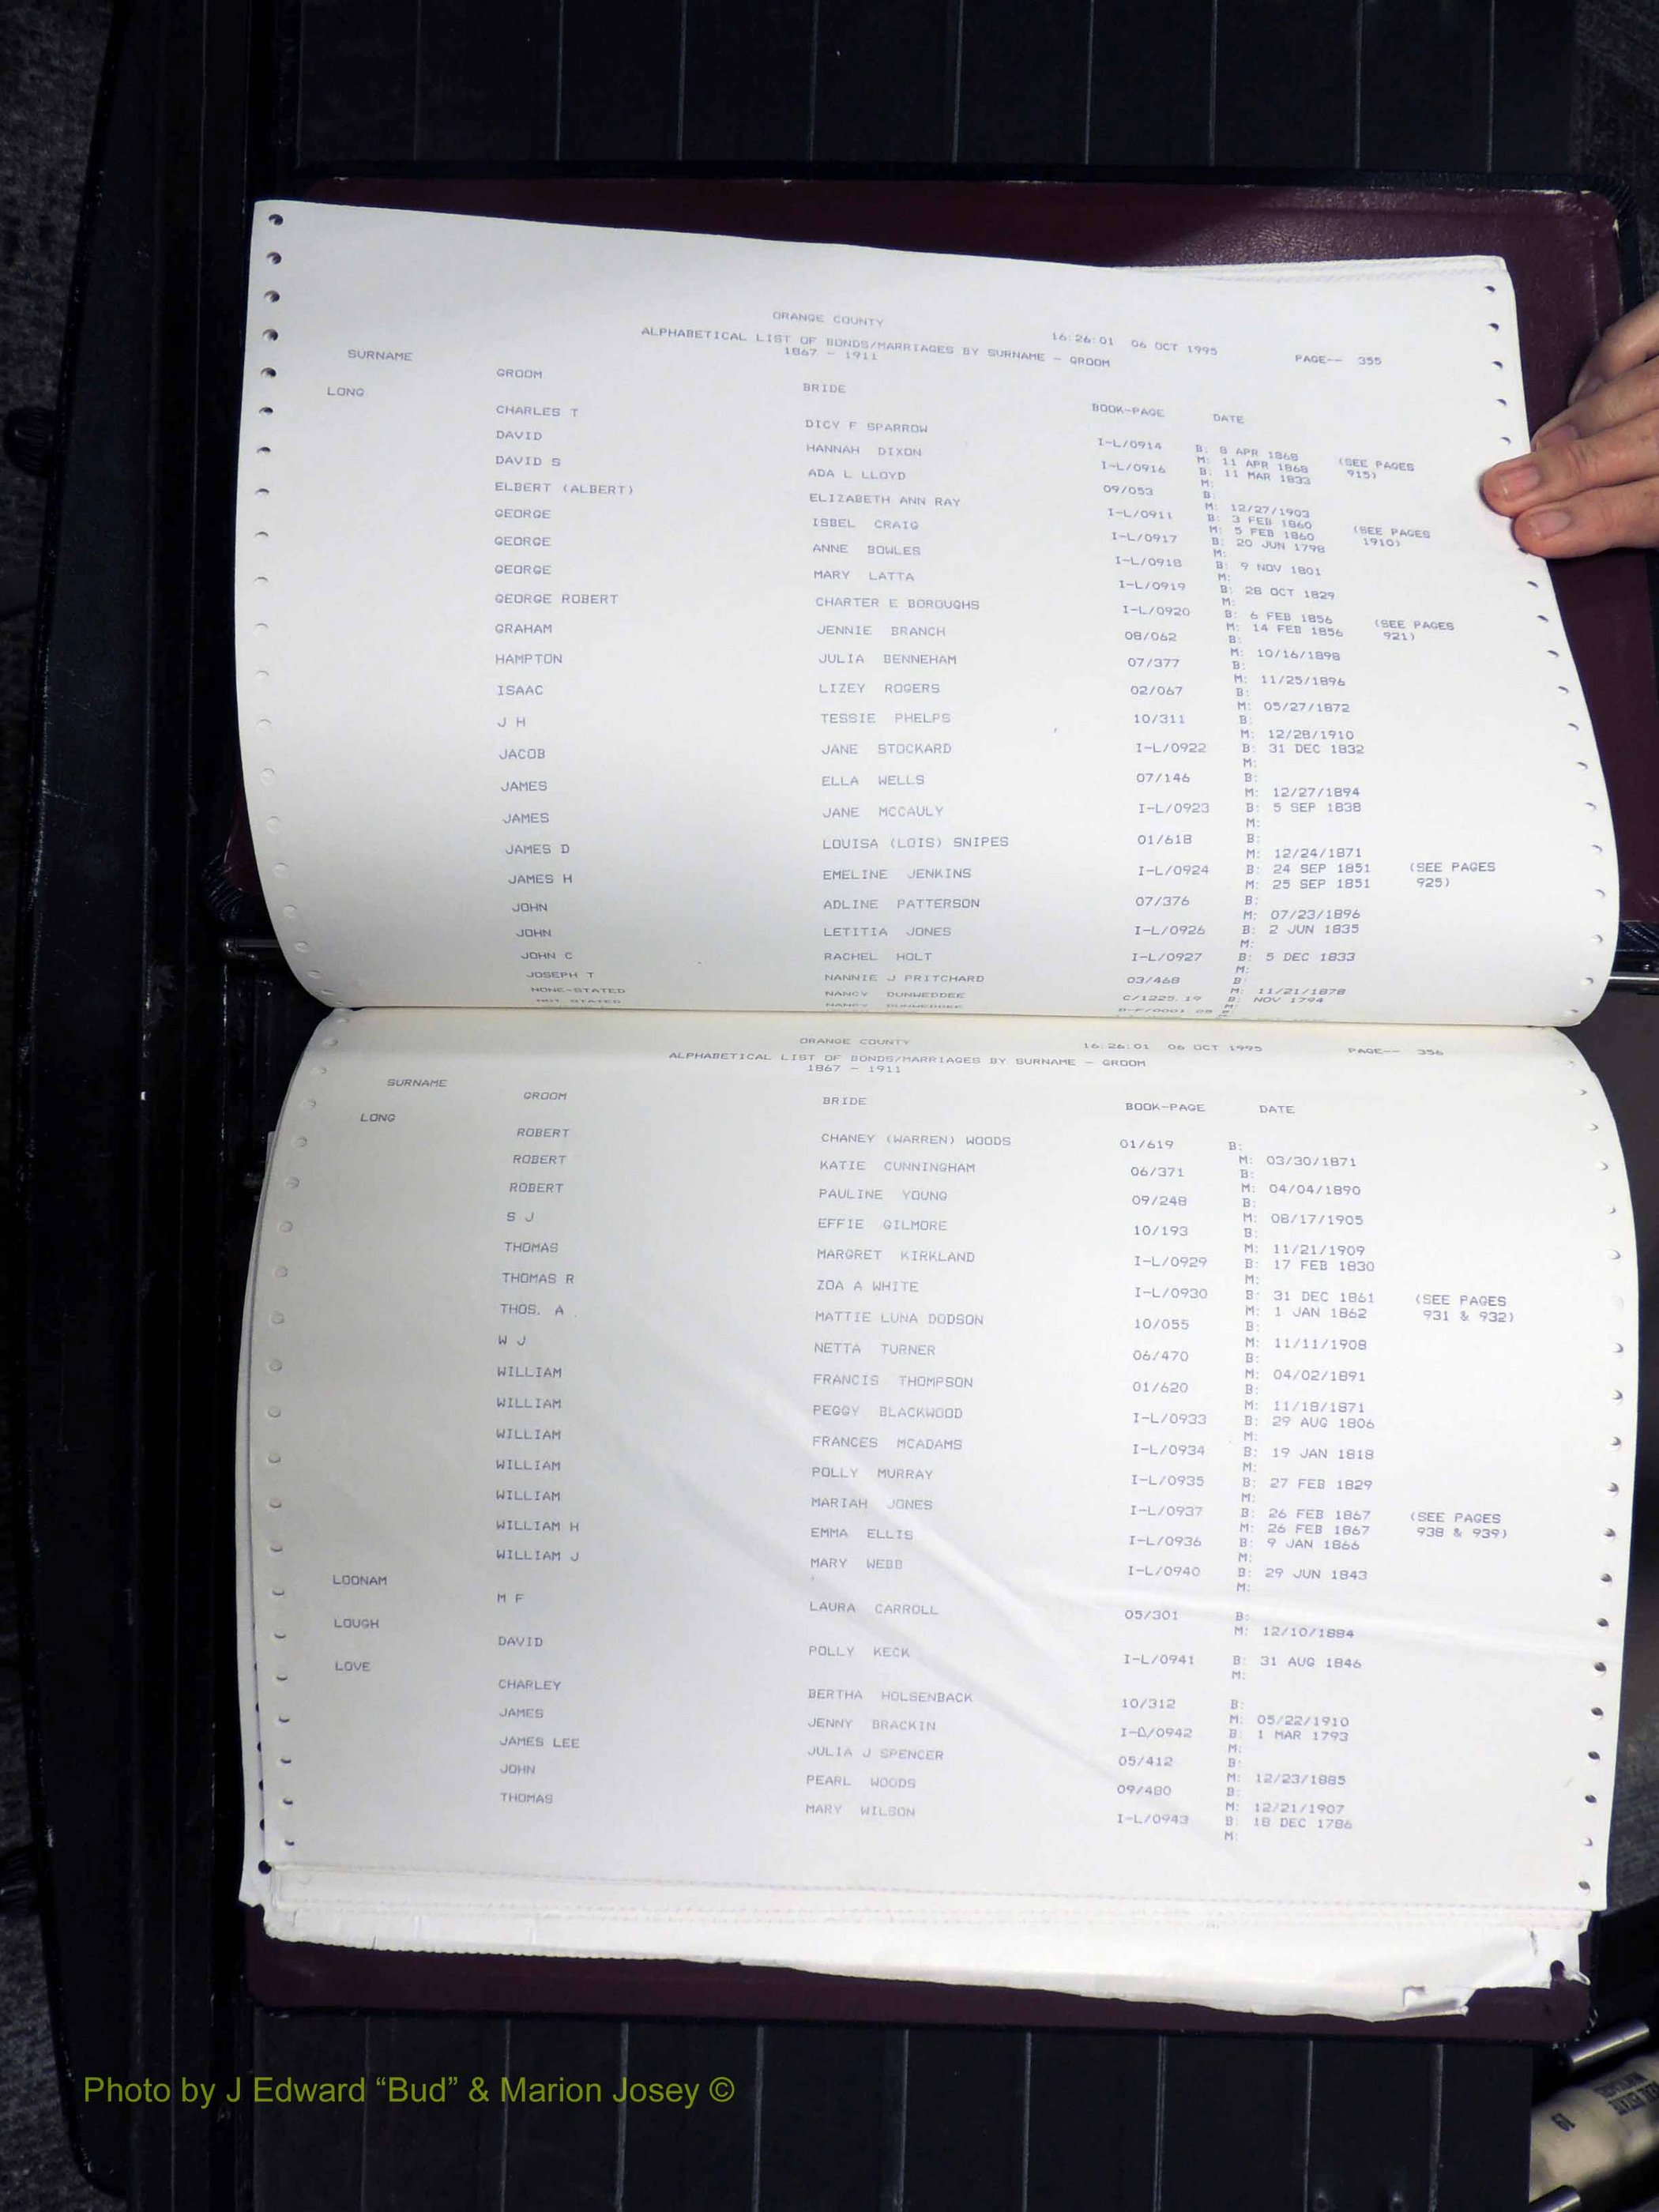 ORANGE COUNTY 16:26:01 06 OCT 1995 PAGE-- 355
ALPHABETICAL LIST OF BONDS/MARRIAGES BY SURNAME - GROOM
1867 - 1911
SURNAME GROOM BRIDE BOOK-PAGE DATE
LONG
CHARLES T DICY F SPARROW I-L/0914 B: 8 APR 1868 (SEE PAGES
M: 11 APR 1868 915)
DAVID HANNAH DIXON I-L/0916 B: 11 MAR 1833
M:
DAVID S ADA L LLOYD 09/053 B:
M: 12/27/1903
ELBERT (ALBERT) ELIZABETH ANN RAY I-L/0911 B: 3 FEB 1860 (SEE PAGES
M: 5 FEB 1860 1910)
GEORGE ISBEL CRAIG I-L/0917 B: 20 JUN 1798
M:
GEORGE ANNE BOWLES I-L/0918 B: 9 NOV 1801
M:
GEORGE MARY LATTA I-L/0919 B: 28 OCT 1829
M:
GEORGE ROBERT CHARTER E BOROUGHS I-L/0920 B: 6 FEB 1856 (SEE PAGES
M: 14 FEB 1856 921)
GRAHAM JENNIE BRANCH 08/062 B:
M: 10/16/1898
HAMPTON JULIA BENNEHAM 07/377 B:
M: 11/25/1896
ISAAC LIZEY ROGERS 02/067 B:
M: 05/27/1872
J H TESSIE PHELPS 10/311 B:
M: 12/28/1910
JACOB JANE STOCKARD I-L/0922 B: 31 DEC 1832
M:
JAMES ELLA WELLS 07/146 B:
M: 12/27/1894
JAMES JANE MCCAULY I-L/0923 B: 5 SEP 1838
M:
JAMES D LOUISA (LOIS) SNIPES 01/618 B:
M: 12/24/1871
JAMES H EMELINE JENKINS I-L/0924 B: 24 SEP 1851 (SEE PAGES
M: 25 SEP 1851 925)
JOHN ADLINE PATTERSON 07/376 B:
M: 07/23/1896
JOHN LETITIA JONES I-L/0926 B: 2 JUN 1835
M:
JOHN C RACHEL HOLT I-L/0927 B: 5 DEC 1833
M:
JOSEPH T NANNIE J PRITCHARD 03/468 B:
M: 11/21/1878
NONE-STATED NANCY DUNWEDDEE C/1225.19 B: NOV 1794
M:
NOT STATED NANCY DUNWEDDEE
ORANGE COUNTY 16:26:01 06 OCT 1995 PAGE-- 356
ALPHABETICAL LIST OF BONDS/MARRIAGES BY SURNAME - GROOM
1867 - 1911
SURNAME GROOM BRIDE BOOK-PAGE DATE
LONG
ROBERT CHANEY (WARREN) WOODS 01/619 B:
M: 03/30/1871
ROBERT KATIE CUNNINGHAM 06/371 B:
M: 04/04/1890
ROBERT PAULINE YOUNG 09/248 B:
M: 08/17/1905
S J EFFIE GILMORE 10/193 B:
M: 11/21/1909
THOMAS MARGRET KIRKLAND I-L/0929 B: 17 FEB 1830
M:
THOMAS R ZOA A WHITE I-L/0930 B: 31 DEC 1861 (SEE PAGES
M: 1 JAN 1862 931 & 932)
THOS. A MATTIE LUNA DODSON 10/055 B:
M: 11/11/1908
W J NETTA TURNER 06/470 B:
M: 04/02/1891
WILLIAM FRANCIS THOMPSON 01/620 B:
M: 11/18/1871
WILLIAM PEGGY BLACKWOOD I-L/0933 B: 29 AUG 1806
M:
WILLIAM FRANCES MCADAMS I-L/0934 B: 19 JAN 1818
M:
WILLIAM POLLY MURRAY I-L/0935 B: 27 FEB 1829
M:
WILLIAM MARIAH JONES I-L/0937 B: 26 FEB 1867 (SEE PAGES
M: 26 FEB 1867 938 & 939)
WILLIAM H EMMA ELLIS I-L/0936 B: 9 JAN 1866
M:
WILLIAM J MARY WEBB I-L/0940 B: 29 JUN 1843
M:
LOONAM
M F LAURA CARROLL 05/301 B:
M: 12/10/1884
LOUGH
DAVID POLLY KECK I-L/0941 B: 31 AUG 1846
M:
LOVE
CHARLEY BERTHA HOLSENBACK 10/312 B:
M: 05/22/1910
JAMES JENNY BRACKIN I-L/0942 B: 1 MAR 1793
M:
JAMES LEE JULIA J SPENCER 05/412 B:
M: 12/23/1885
JOHN PEARL WOODS 09/480 B:
M: 12/21/1907
THOMAS MARY WILSON I-L/0943 B: 18 DEC 1786
M:
Photo by J Edward “Bud” & Marion Josey ©